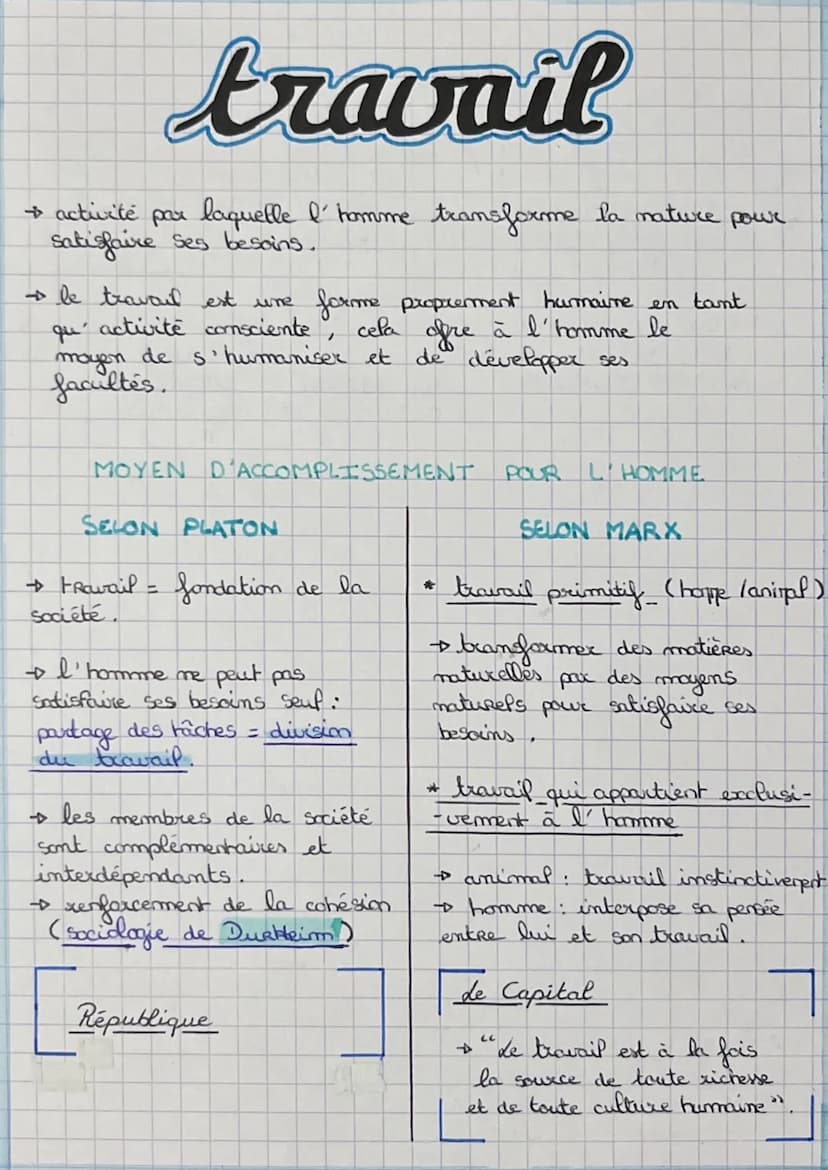 travail
→ activité par laquelle l'homme transforme la nature pour
satisfaire ses besoins.
→ le travail est une forme proprement humaine en tant
qu'activité consciente, cela offre à l'homme le
moyen de s'humaniser et de développer ses
facultés.
MOYEN D'ACCOMPLISSEMENT POUR L'HOMME
SELON PLATON
→ travail = fondation de la
société.
→ l'homme ne peut pas
satisfaire ses besoins seul :
partage des tâches = division
du travail.
→ les membres de la société
sont complémentaires et
interdépendants.
→ renforcement de la cohésion
(sociologie de Durkheim)
République
SELON MARX
* travail primitif (homme/animal)
→ transformer des matières
naturelles par des moyens
naturels pour satisfaire ses
besoins.
* travail qui appartient exclusi-
-vement à l'homme
→ animal : travail instinctivement
→ homme : interpose sa pensée
entre lui et son travail.
Le Capital
→ "Le travail est à la fois
la source de toute richesse
et de toute culture humaine".